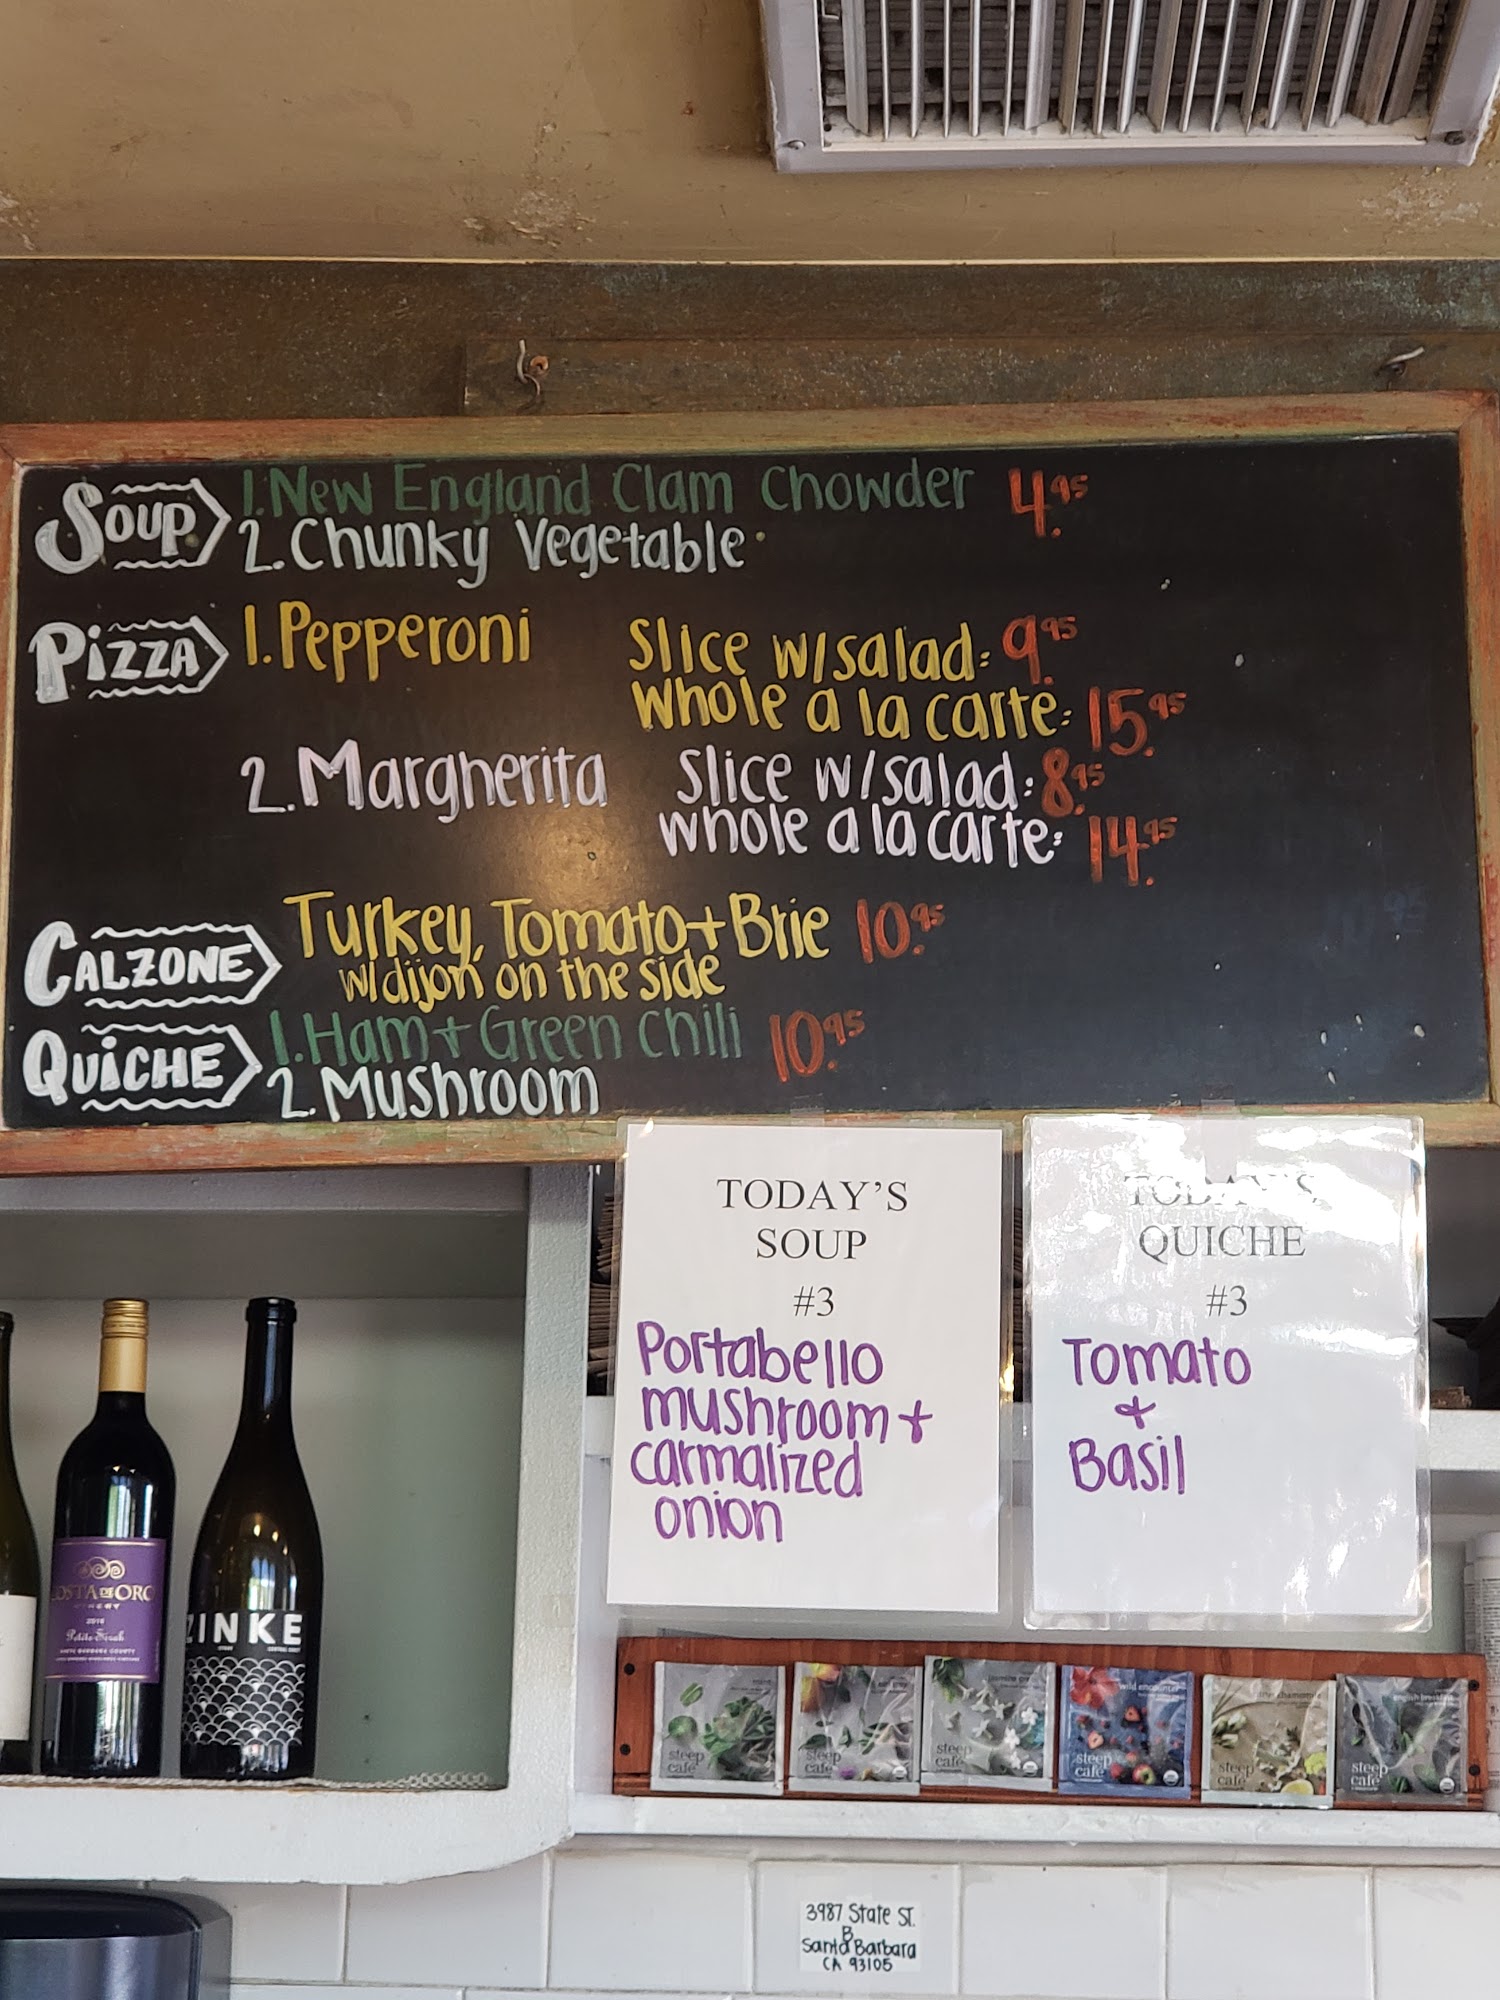 SOUP
1. New England Clam Chowder 4.95
2. Chunky Vegetable
PIZZA
1. Pepperoni
Slice w/salad: 9.95
whole a la carte: 15.95
2. Margherita
Slice w/salad: 8.95
whole a la carte: 14.95
CALZONE
Turkey, Tomato + Brie 10.95
w/dijon on the side
QUICHE
1. Ham + Green Chili 10.95
2. Mushroom
TODAY'S
SOUP
#3
Portabello
mushroom +
carmalized
onion
TODAY'S
QUICHE
#3
Tomato
&
Basil
COSTA DE ORO
WINERY
2016
Petite Sirah
SANTA BARBARA COUNTY
ZINKE
steep
café
steep
café
steep
café
wild encounter
steep
café
steep
café
english breakfast
steep
café
3987 State St.
B
Santa Barbara
CA 93105